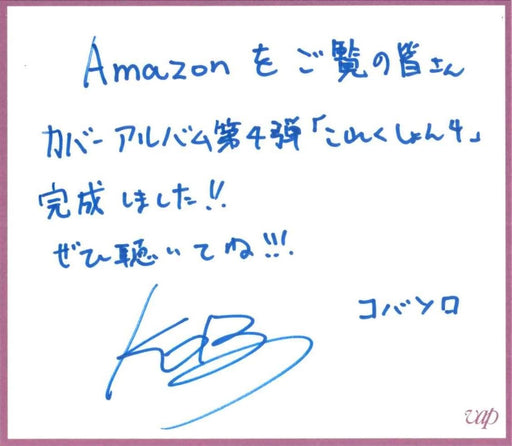 Amazonをご覧の皆さん
カバーアルバム第4弾「これくしょん4」
完成しました!!
ぜひ聴いてね!!!
コバソロ
KOB
vap